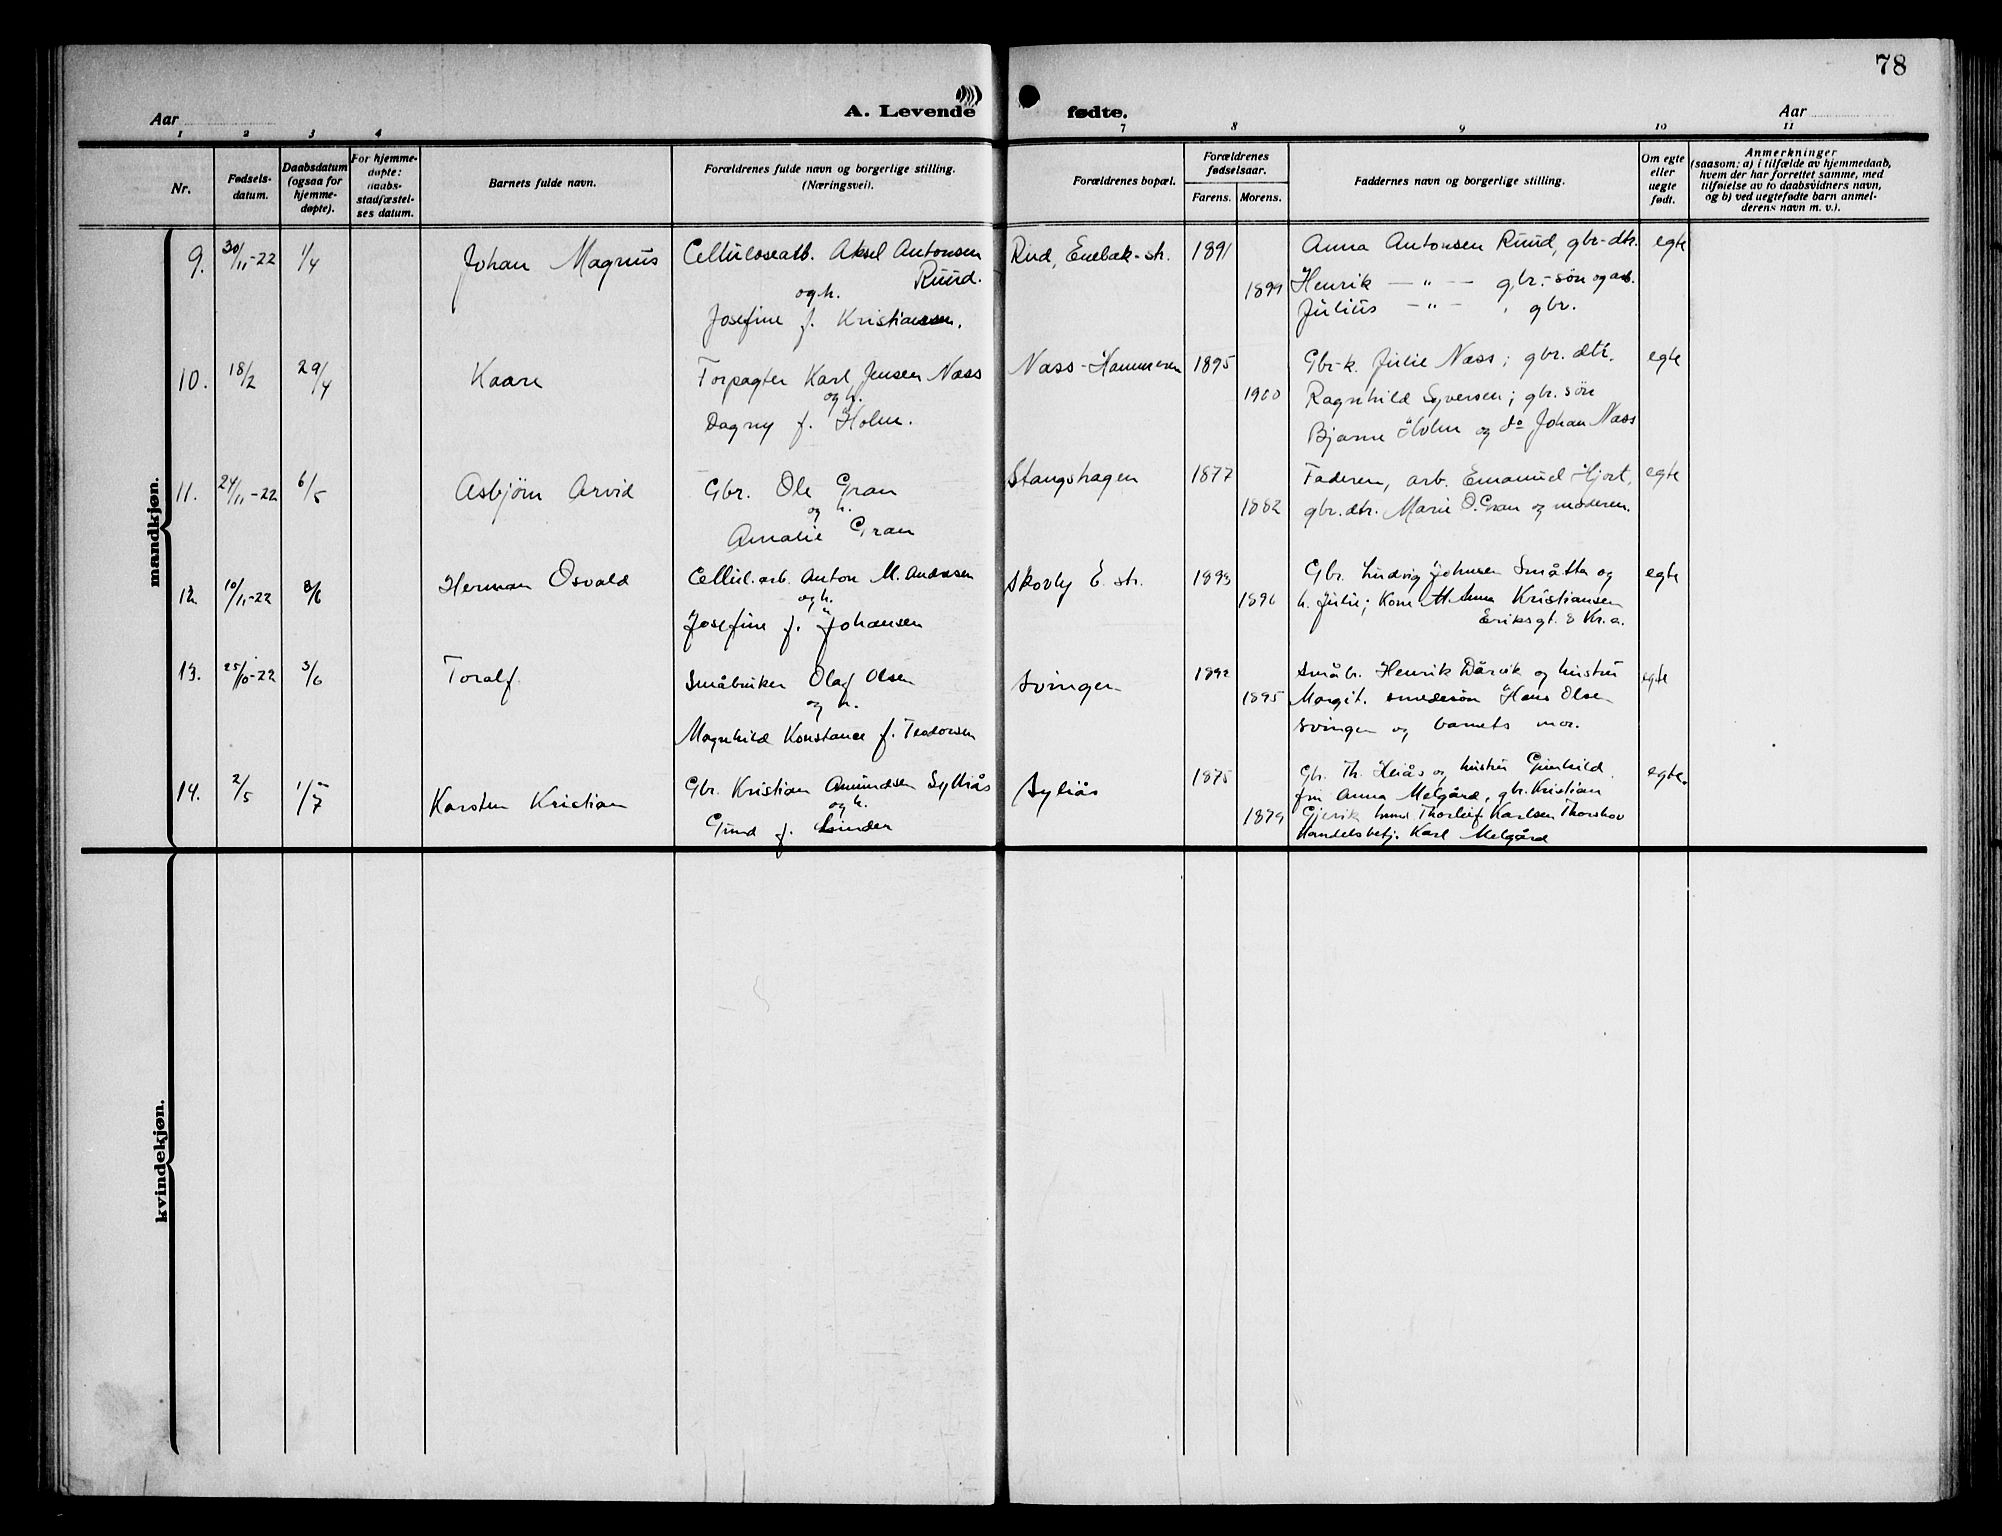 78
Aar
A. Levende fødte.
Aar
1 2 3 4 7 8 9 10 11
Nr.
Fødsels-
datum.
Daabsdatum
(ogsaa for
hjemme-
døpte).
For hjemme-
døpte:
daabs-
stadfæstel-
ses datum.
Barnets fulde navn.
Forældrenes fulde navn og borgerlige stilling.
(Næringsvei).
Forældrenes bopæl.
Forældrenes
fødselsaar.
Farens. Morens.
Faddernes navn og borgerlige stilling.
Om egte
eller
uegte
født.
Anmerkninger
(saasom: a) i tilfælde av hjemmedaab,
hvem der har forrettet samme, med
tilføielse av to daabsvidners navn,
og b) ved uegtefødte barn anmel-
derens navn m. v.).
mandkjøn.
9. 30/11-22 1/4 Johan Magnus
Celluloseatb. Aksel Antonsen
Ruud.
og h.
Josefine f. Kristiansen.
Rud, Enebak-st. 1891
1899
Anna Antonsen Ruud, gbr-dtr.
Henrik — " — gbr.-søn og arb.
Julius — " — , gbr.
egte
10. 18/2 29/4 Kaare
Forpagter Karl Jensen Næss
og h.
Dagny f. Holm.
Næss-Hammeren 1895
1900
Gbr-k. Julie Næss; gbr. dtr.
Ragnhild Syversen; gbr. søn
Bjarne Holm og do Johan Næss
egte
11. 24/11-22 6/5 Asbjørn Arvid
Gbr. Ole Gran
og h.
Amalie Gran
Stangshagen 1877
1882
Faderen, arb. Emanuel Hjort,
gbr. dtr. Marie O. Gran og moderen.
egte
12. 10/11-22 3/6 Herman Osvald
Cellul. arb. Anton M. Andresen
og h.
Josefine f. Johansen
Skovly E. st. 1893
1896
Gbr. Ludvig Johnsen Småtta og
h. Julie; Kone M. Anna Kristiansen
Eriksgt. 8 Kr.a.
egte
13. 25/10-22 3/6 Toralf
Småbruker Olaf Olsen
og h.
Magnhild Konstance f. Teodorsen
Svingen 1892
1895
Småb. Henrik Dårvik og hustru
Margit. smedesøn Hans Olsen
Svingen og barnets mor.
egte
14. 2/5 1/7 Karsten Kristian
Gbr. Kristian Amundsen Sylliås
og h.
Gund f. Linder
Syliås 1875
1879
Gbr. Th. Heiås og hustru Gunhild.
fru Anna Melgård, gbr. Kristian
Gjervik Thorleif Karlsen Thorshov
Handelsbetj. Karl Melgård
egte.
kvindekjøn.